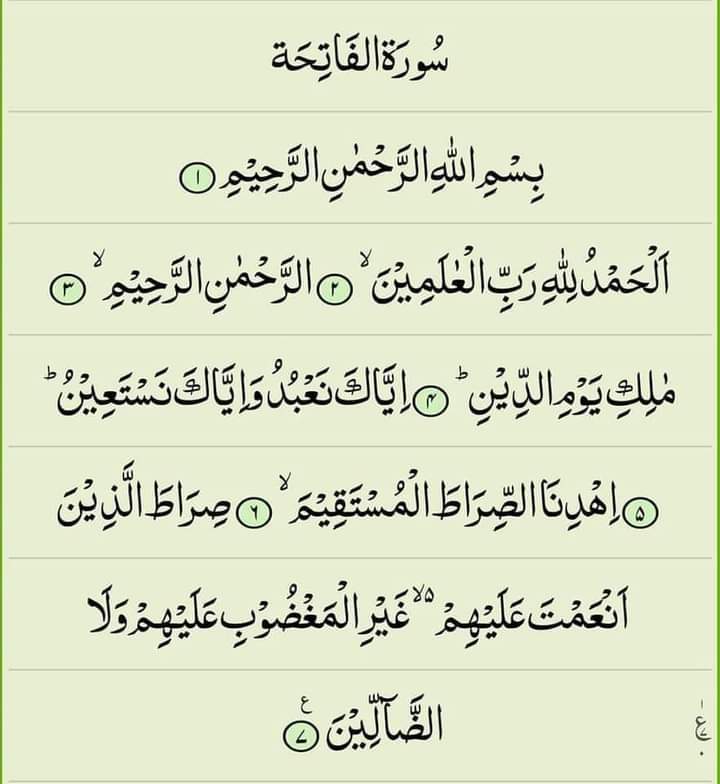 سُورَةُ الفَاتِحَة
بِسْمِ اللهِ الرَّحْمٰنِ الرَّحِيْمِ ۝۱
اَلْحَمْدُ لِلّٰهِ رَبِّ الْعٰلَمِيْنَ ۙ ۝۲ الرَّحْمٰنِ الرَّحِيْمِ ۙ ۝۳
مٰلِكِ يَوْمِ الدِّيْنِ ؕ ۝۴ اِيَّاكَ نَعْبُدُ وَاِيَّاكَ نَسْتَعِيْنُ ؕ
۝۵ اِهْدِنَا الصِّرَاطَ الْمُسْتَقِيْمَ ۙ ۝۶ صِرَاطَ الَّذِيْنَ
اَنْعَمْتَ عَلَيْهِمْ ۵ ۙ غَيْرِ الْمَغْضُوْبِ عَلَيْهِمْ وَلَا
الضَّآلِّيْنَ ۝۷ ع